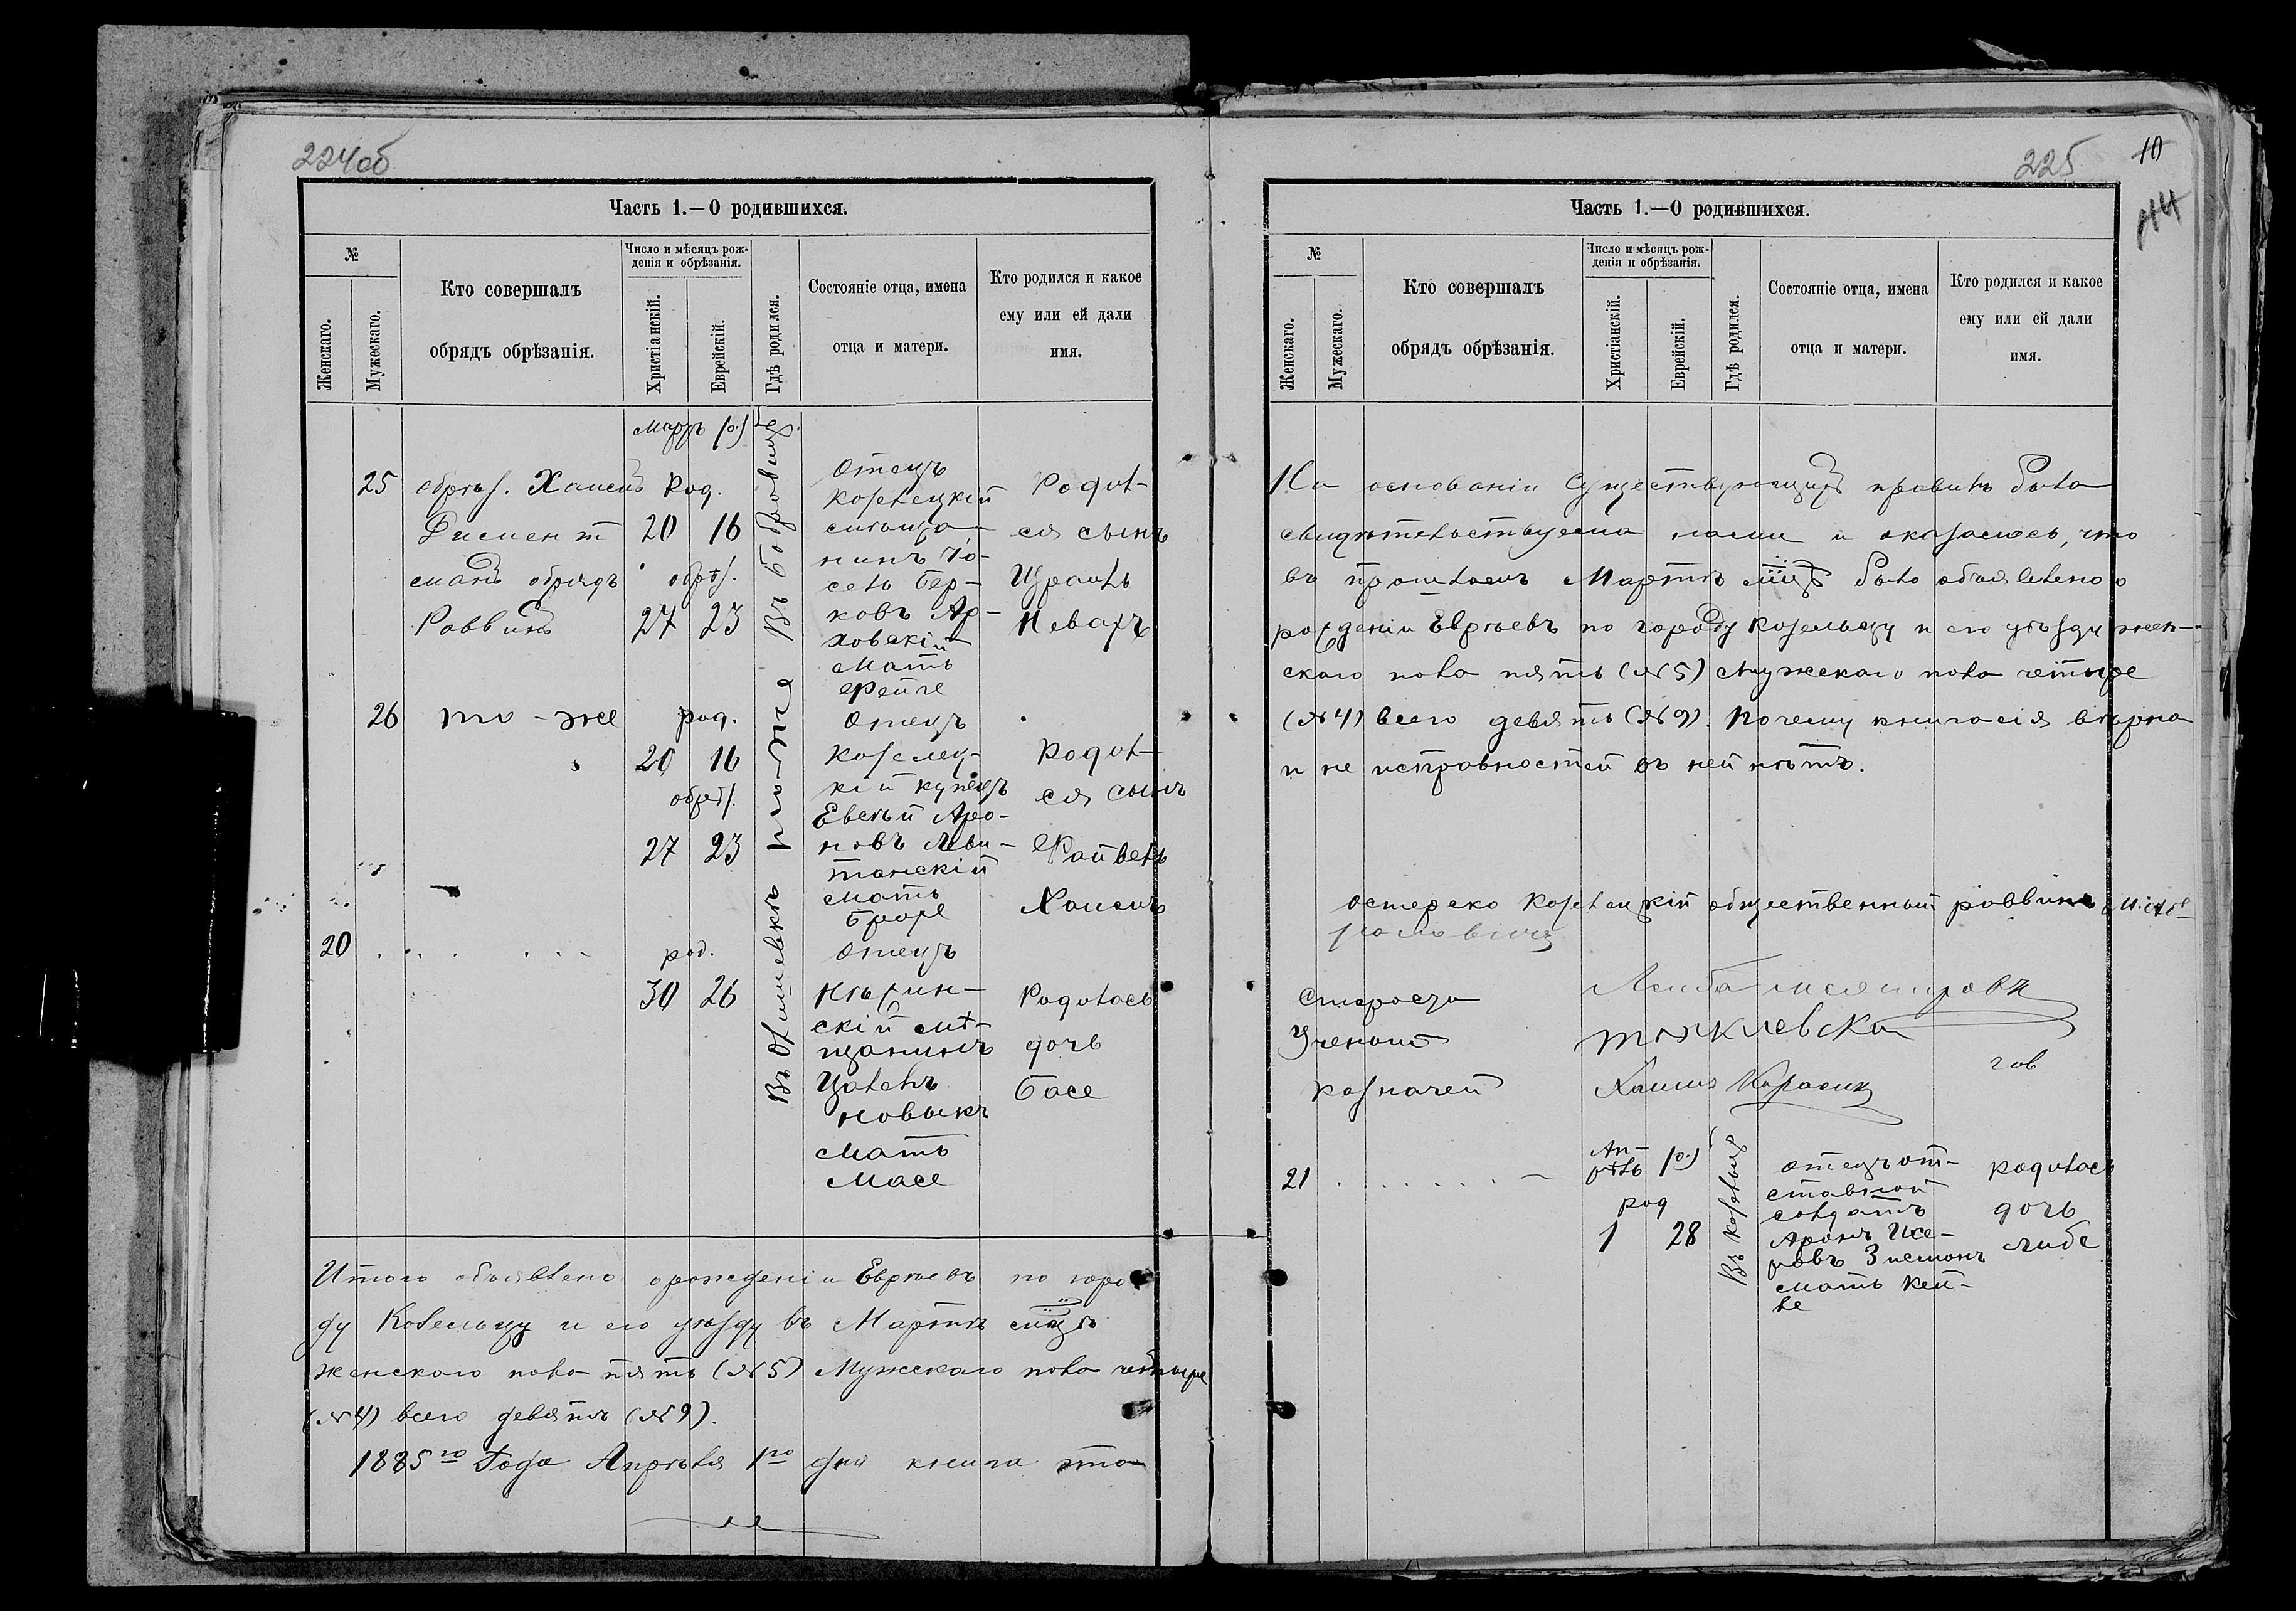 224об
Часть 1.—О родившихся.
№
Женскаго.
Мужескаго.
Кто совершалъ
обрядъ обрѣзанія.
Число и мѣсяцъ рож-
денія и обрѣзанія.
Христіанскій.
Еврейскій.
Гдѣ родился.
Состояніе отца, имена
отца и матери.
Кто родился и какое
ему или ей дали
имя.
Мартъ
25
обрѣз. Хаимъ
манъ обрядъ
Раввинъ
род.
20 16
обрѣз.
27 23
Въ
Отецъ
Козелецкій
мѣща-
нинъ Іо-
сель Бер-
ковъ Ар-
ховскій
мать
Фейге
Родил-
ся сынъ
Израиль
26
то-же
род.
20 16
обрѣз.
27 23
то-же
Отецъ
Козелец-
кій купецъ
Евсѣй Аро-
новъ Леви-
танскій
мать
Родил-
ся сынъ
Хаимъ
20
род.
30 26
Въ
Отецъ
Нѣжин-
скій мѣ-
щанинъ
Цалель
Новыкъ
мать
Масе
Родилась
дочь
Басе
Итого объявлено о рожденіи Евреевъ по горо-
ду Козельцу и его уѣзду въ Мартѣ мцѣ
женскаго пола пять (№5) Мужскаго пола четыре
(№4) всего девять (№9).
1885го Года Апрѣля 1го дня книга эта
225
10
Часть 1.—О родившихся.
№
Женскаго.
Мужескаго.
Кто совершалъ
обрядъ обрѣзанія.
Число и мѣсяцъ рож-
денія и обрѣзанія.
Христіанскій.
Еврейскій.
Гдѣ родился.
Состояніе отца, имена
отца и матери.
Кто родился и какое
ему или ей дали
имя.
На основаніи существующихъ правилъ была
свидѣтельствуема нами и оказалось, что
въ прошломъ Мартѣ мцѣ было объявлено о
рожденіи Евреевъ по городу Козельцу и его уѣзду жен-
скаго пола пять (№5) мужскаго пола четыре
(№4) всего девять (№9). Почему книга сія вѣрна
и не исправностей въ ней нѣтъ.
Остерско Козелецкій общественный раввинъ
Староста
Ученый
Казначей
Хаимъ
21
Ап-
рѣль
род
1 28
Въ Козельцѣ
отецъ от-
ставной
солдатъ
Аронъ Исе-
ровъ
мать Кей-
ле
родилась
дочь
Либе